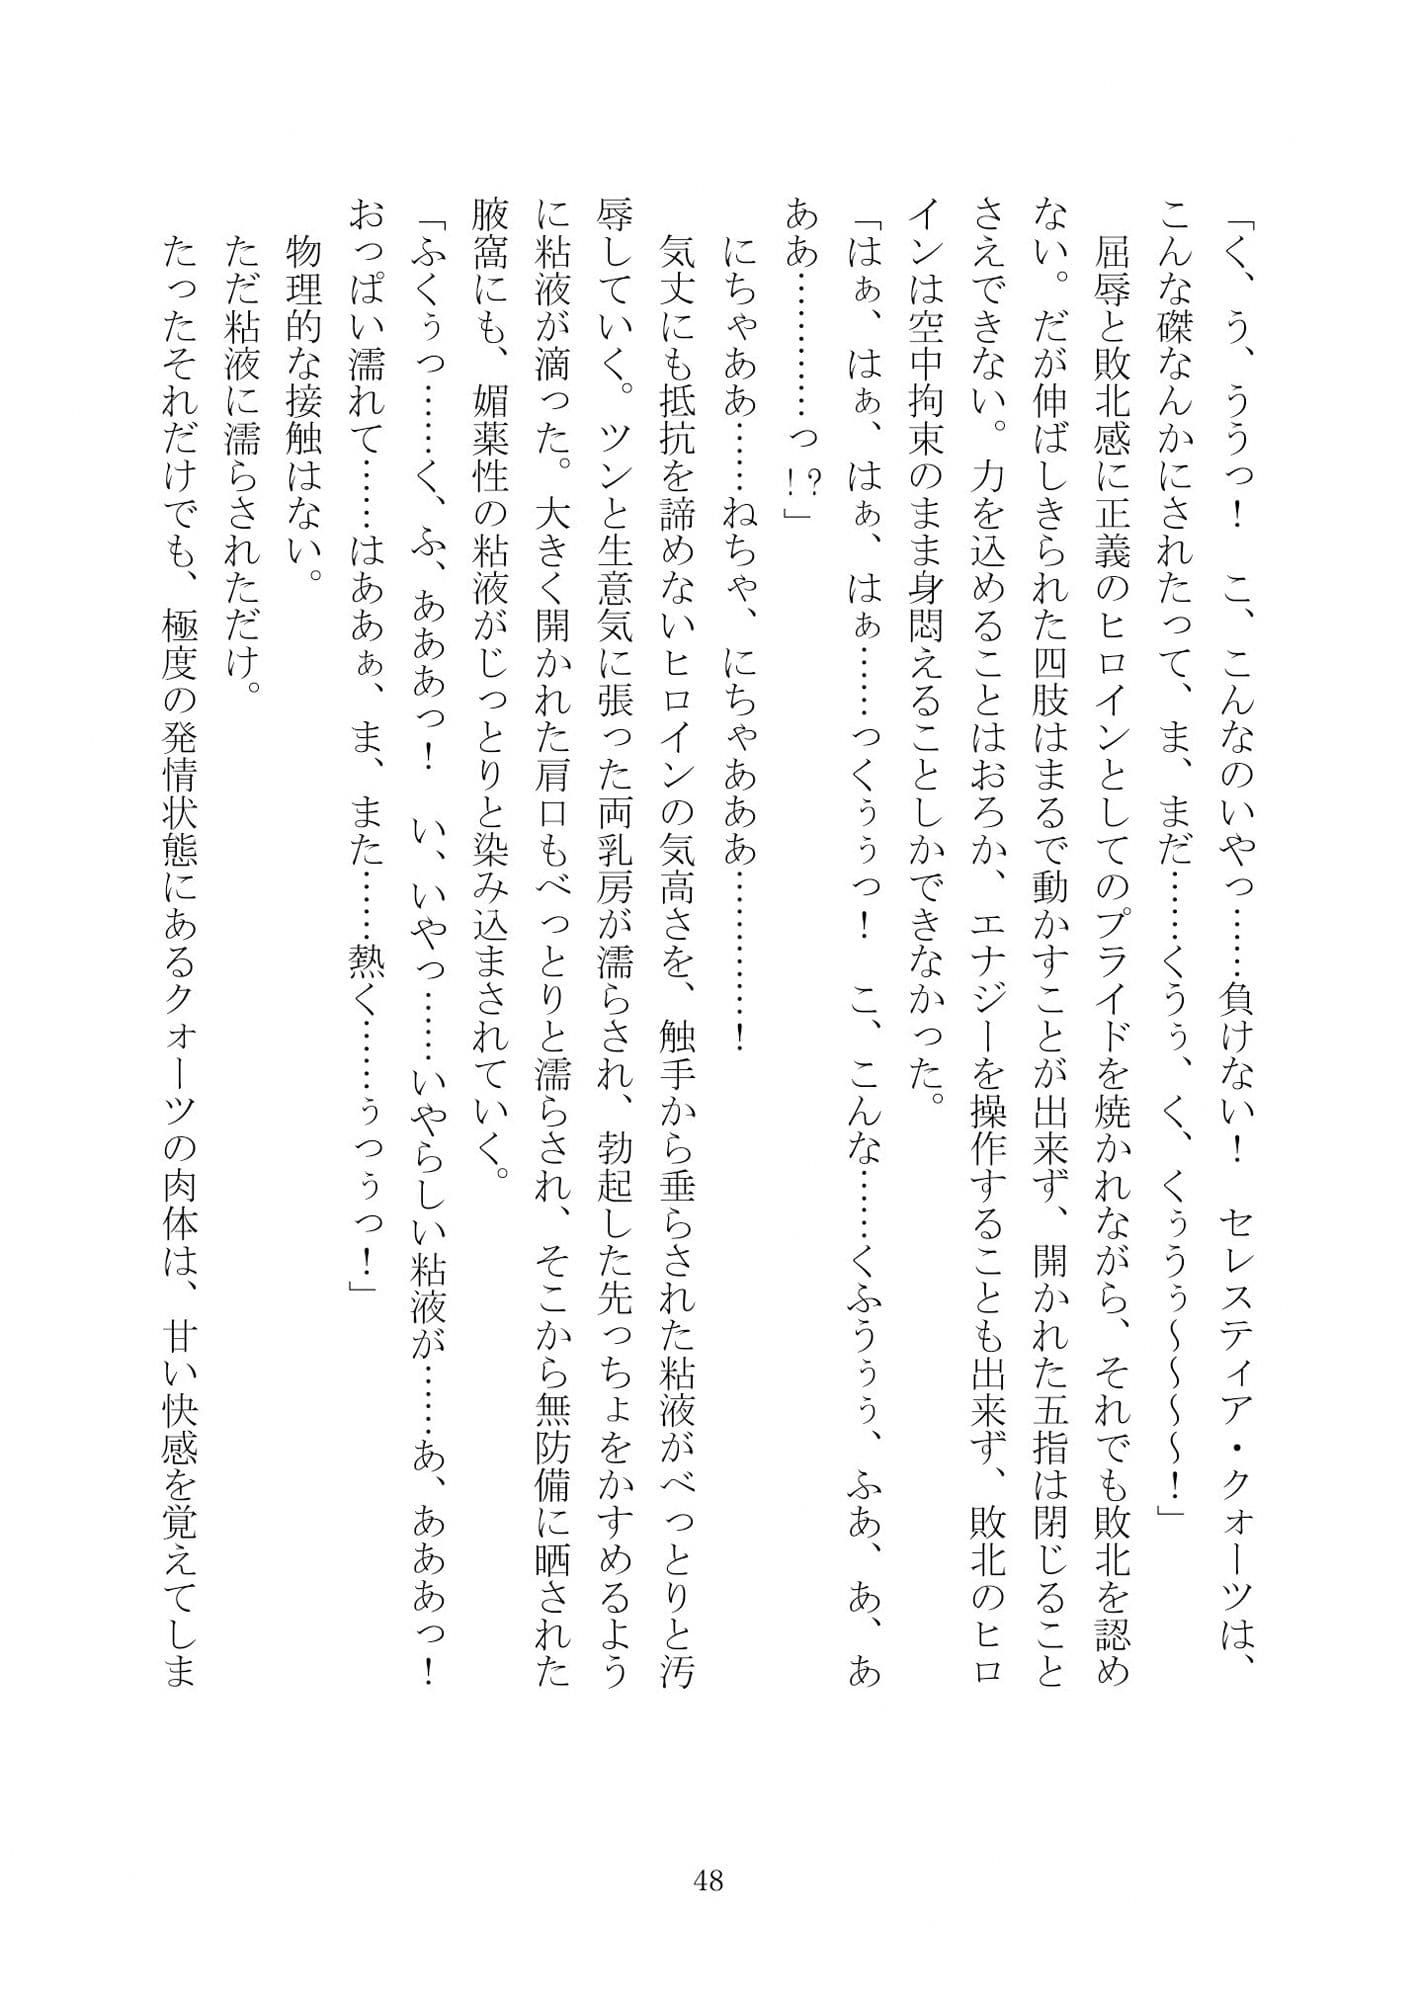 「く、う、ううっ！　こ、こんなのいやっ……負けない！　セレスティア・クォーツは、
こんな磔なんかにされたって、ま、まだ……くうぅ、く、くぅうぅ～～～～！」
　屈辱と敗北感に正義のヒロインとしてのプライドを焼かれながら、それでも敗北を認め
ない。だが伸ばしきられた四肢はまるで動かすことが出来ず、開かれた五指は閉じること
さえできない。力を込めることはおろか、エナジーを操作することも出来ず、敗北のヒロ
インは空中拘束のまま身悶えることしかできなかった。
「はぁ、はぁ、はぁ、はぁ……っくぅぅっ！　こ、こんな……くふうぅぅ、ふあ、あ、あ
ああ…………っ!?」
　にちゃああ……ねちゃ、にちゃあああ…………！
　気丈にも抵抗を諦めないヒロインの気高さを、触手から垂らされた粘液がべっとりと汚
辱していく。ツンと生意気に張った両乳房が濡らされ、勃起した先っちょをかすめるよう
に粘液が滴った。大きく開かれた肩口もべっとりと濡らされ、そこから無防備に晒された
腋窩にも、媚薬性の粘液がじっとりと染み込まされていく。
「ふくぅっ……く、ふ、あああっ！　い、いやっ……いやらしい粘液が……あ、あああっ！
おっぱい濡れて……はあぁ、ま、また……熱く……ぅっぅっ！」
　物理的な接触はない。
　ただ粘液に濡らされただけ。
　たったそれだけでも、極度の発情状態にあるクォーツの肉体は、甘い快感を覚えてしま
48